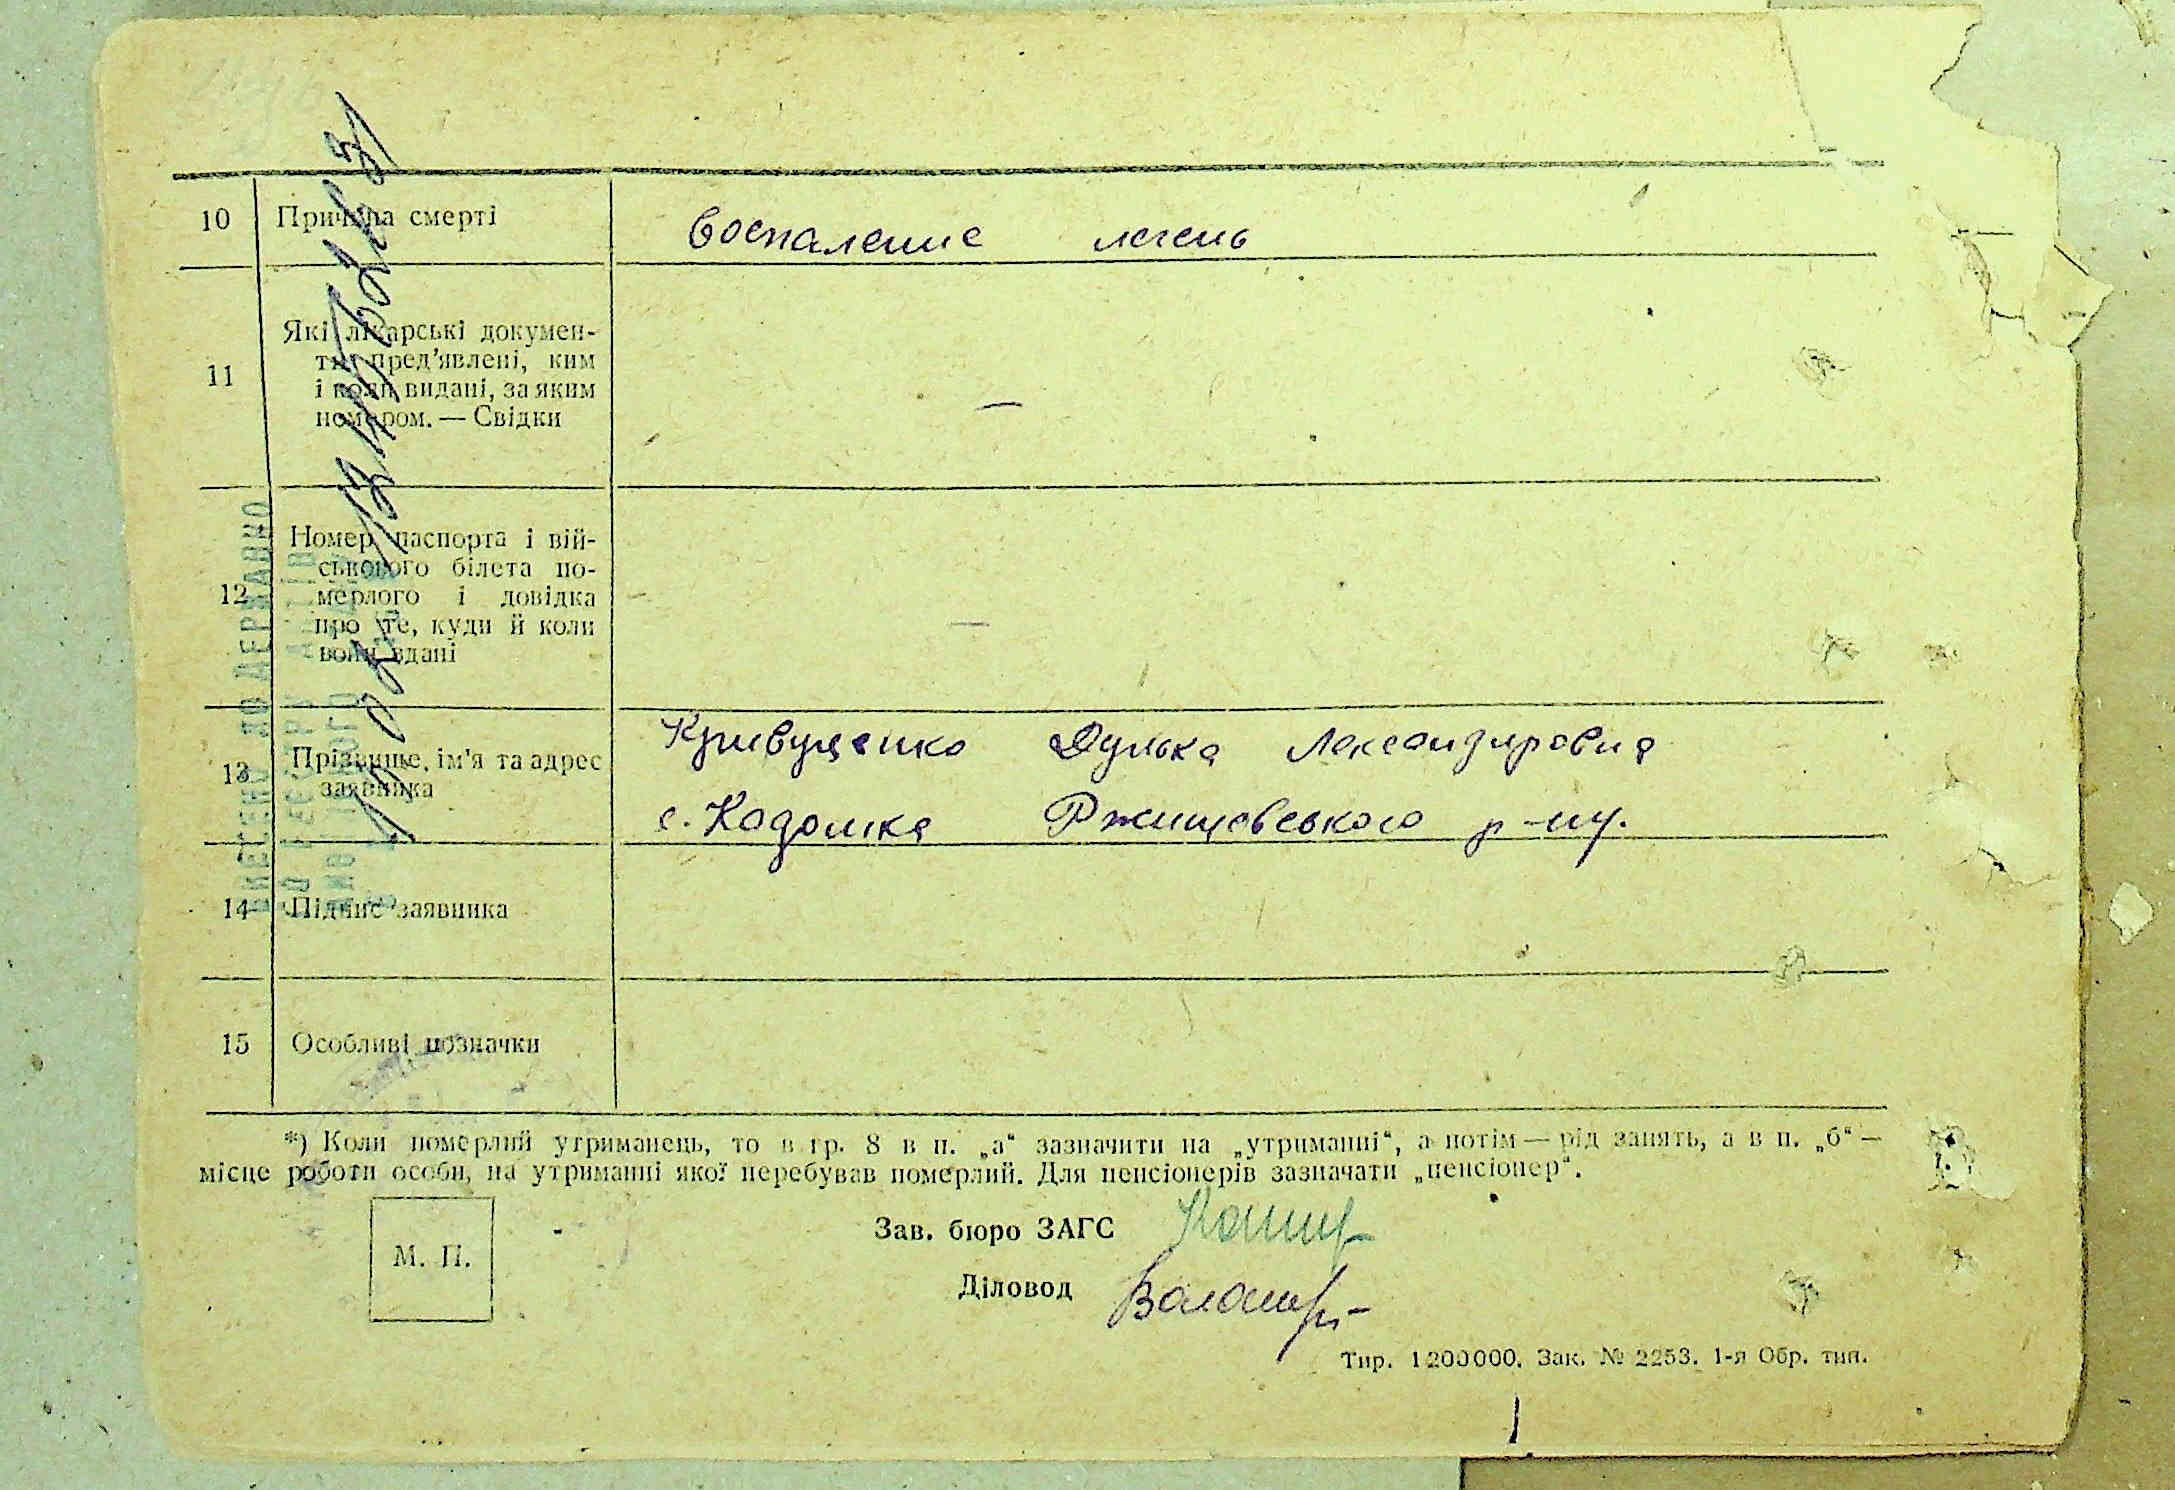 10 Причина смерті воспаление легень
11 Які лікарські докумен-
ти пред'явлені, ким
і коли видані, за яким
номером. — Свідки —
12 Номер паспорта і вій-
ськового білета по-
мерлого і довідка
про те, куди й коли
вони здані —
13 Прізвище, ім'я та адрес
заявника
Кривущенко Дунька Лександровна
с. Кадомка Ржищевського р-ну.
14 Підпис заявника
15 Особливі позначки
*) Коли померлий утриманець, то в гр. 8 в п. „а“ зазначити на „утриманні“, а потім — рід занять, а в п. „б“ —
місце роботи особи, на утриманні якої перебував померлий. Для пенсіонерів зазначати „пенсіонер“.
М. П.
Зав. бюро ЗАГС
Діловод
Тир. 1200000. Зак. № 2253. 1-я Обр. тип.